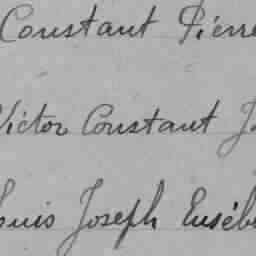 Constant Pierre
Victor Constant J
Louis Joseph Eusèb